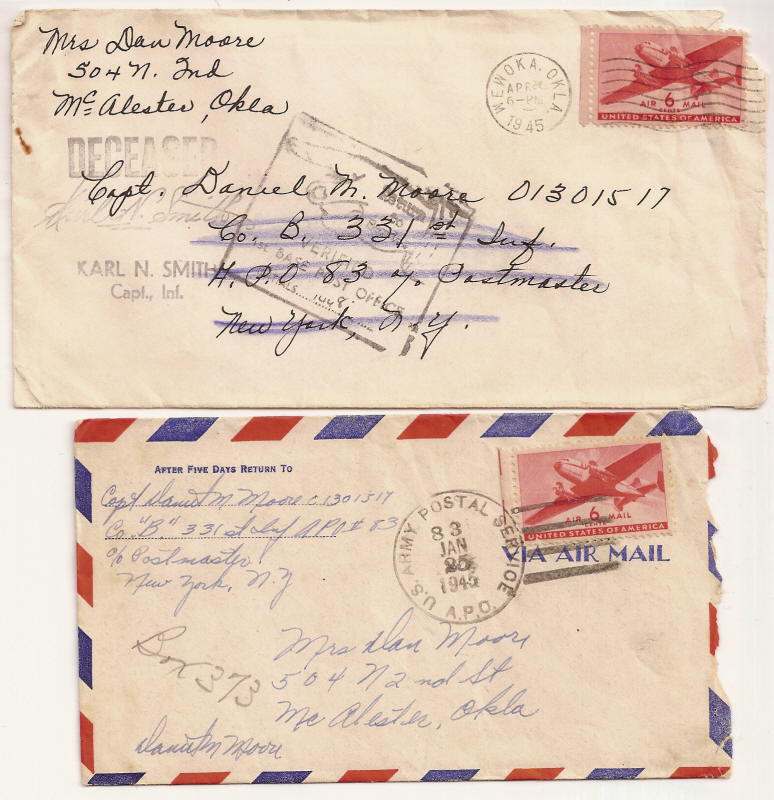 Mrs Dan Moore
504 N. 2nd
McAlester, Okla
WEWOKA, OKLA.
APR
6-PM
1945
AIR 6 MAIL
CENTS
UNITED STATES OF AMERICA
DECEASED
Capt. Daniel M. Moore 01301517
Co. B. 331st Inf.
A.P.O 83 % Postmaster
New York, N.Y.
Karl N. Smith
KARL N. SMITH
Capt., Inf.
VERIFIED
BASE POST OFFICE
AFTER FIVE DAYS RETURN TO
Capt Daniel M Moore 01301517
Co. "B." 331st Inf APO# 83
c/o Postmaster
New York, N.Y
U.S. ARMY POSTAL SERVICE
A.P.O.
83
JAN
25
1945
AIR 6 MAIL
CENTS
UNITED STATES OF AMERICA
VIA AIR MAIL
Box 373
Mrs Dan Moore
504 N 2nd St
McAlester, Okla
Daniel M Moore